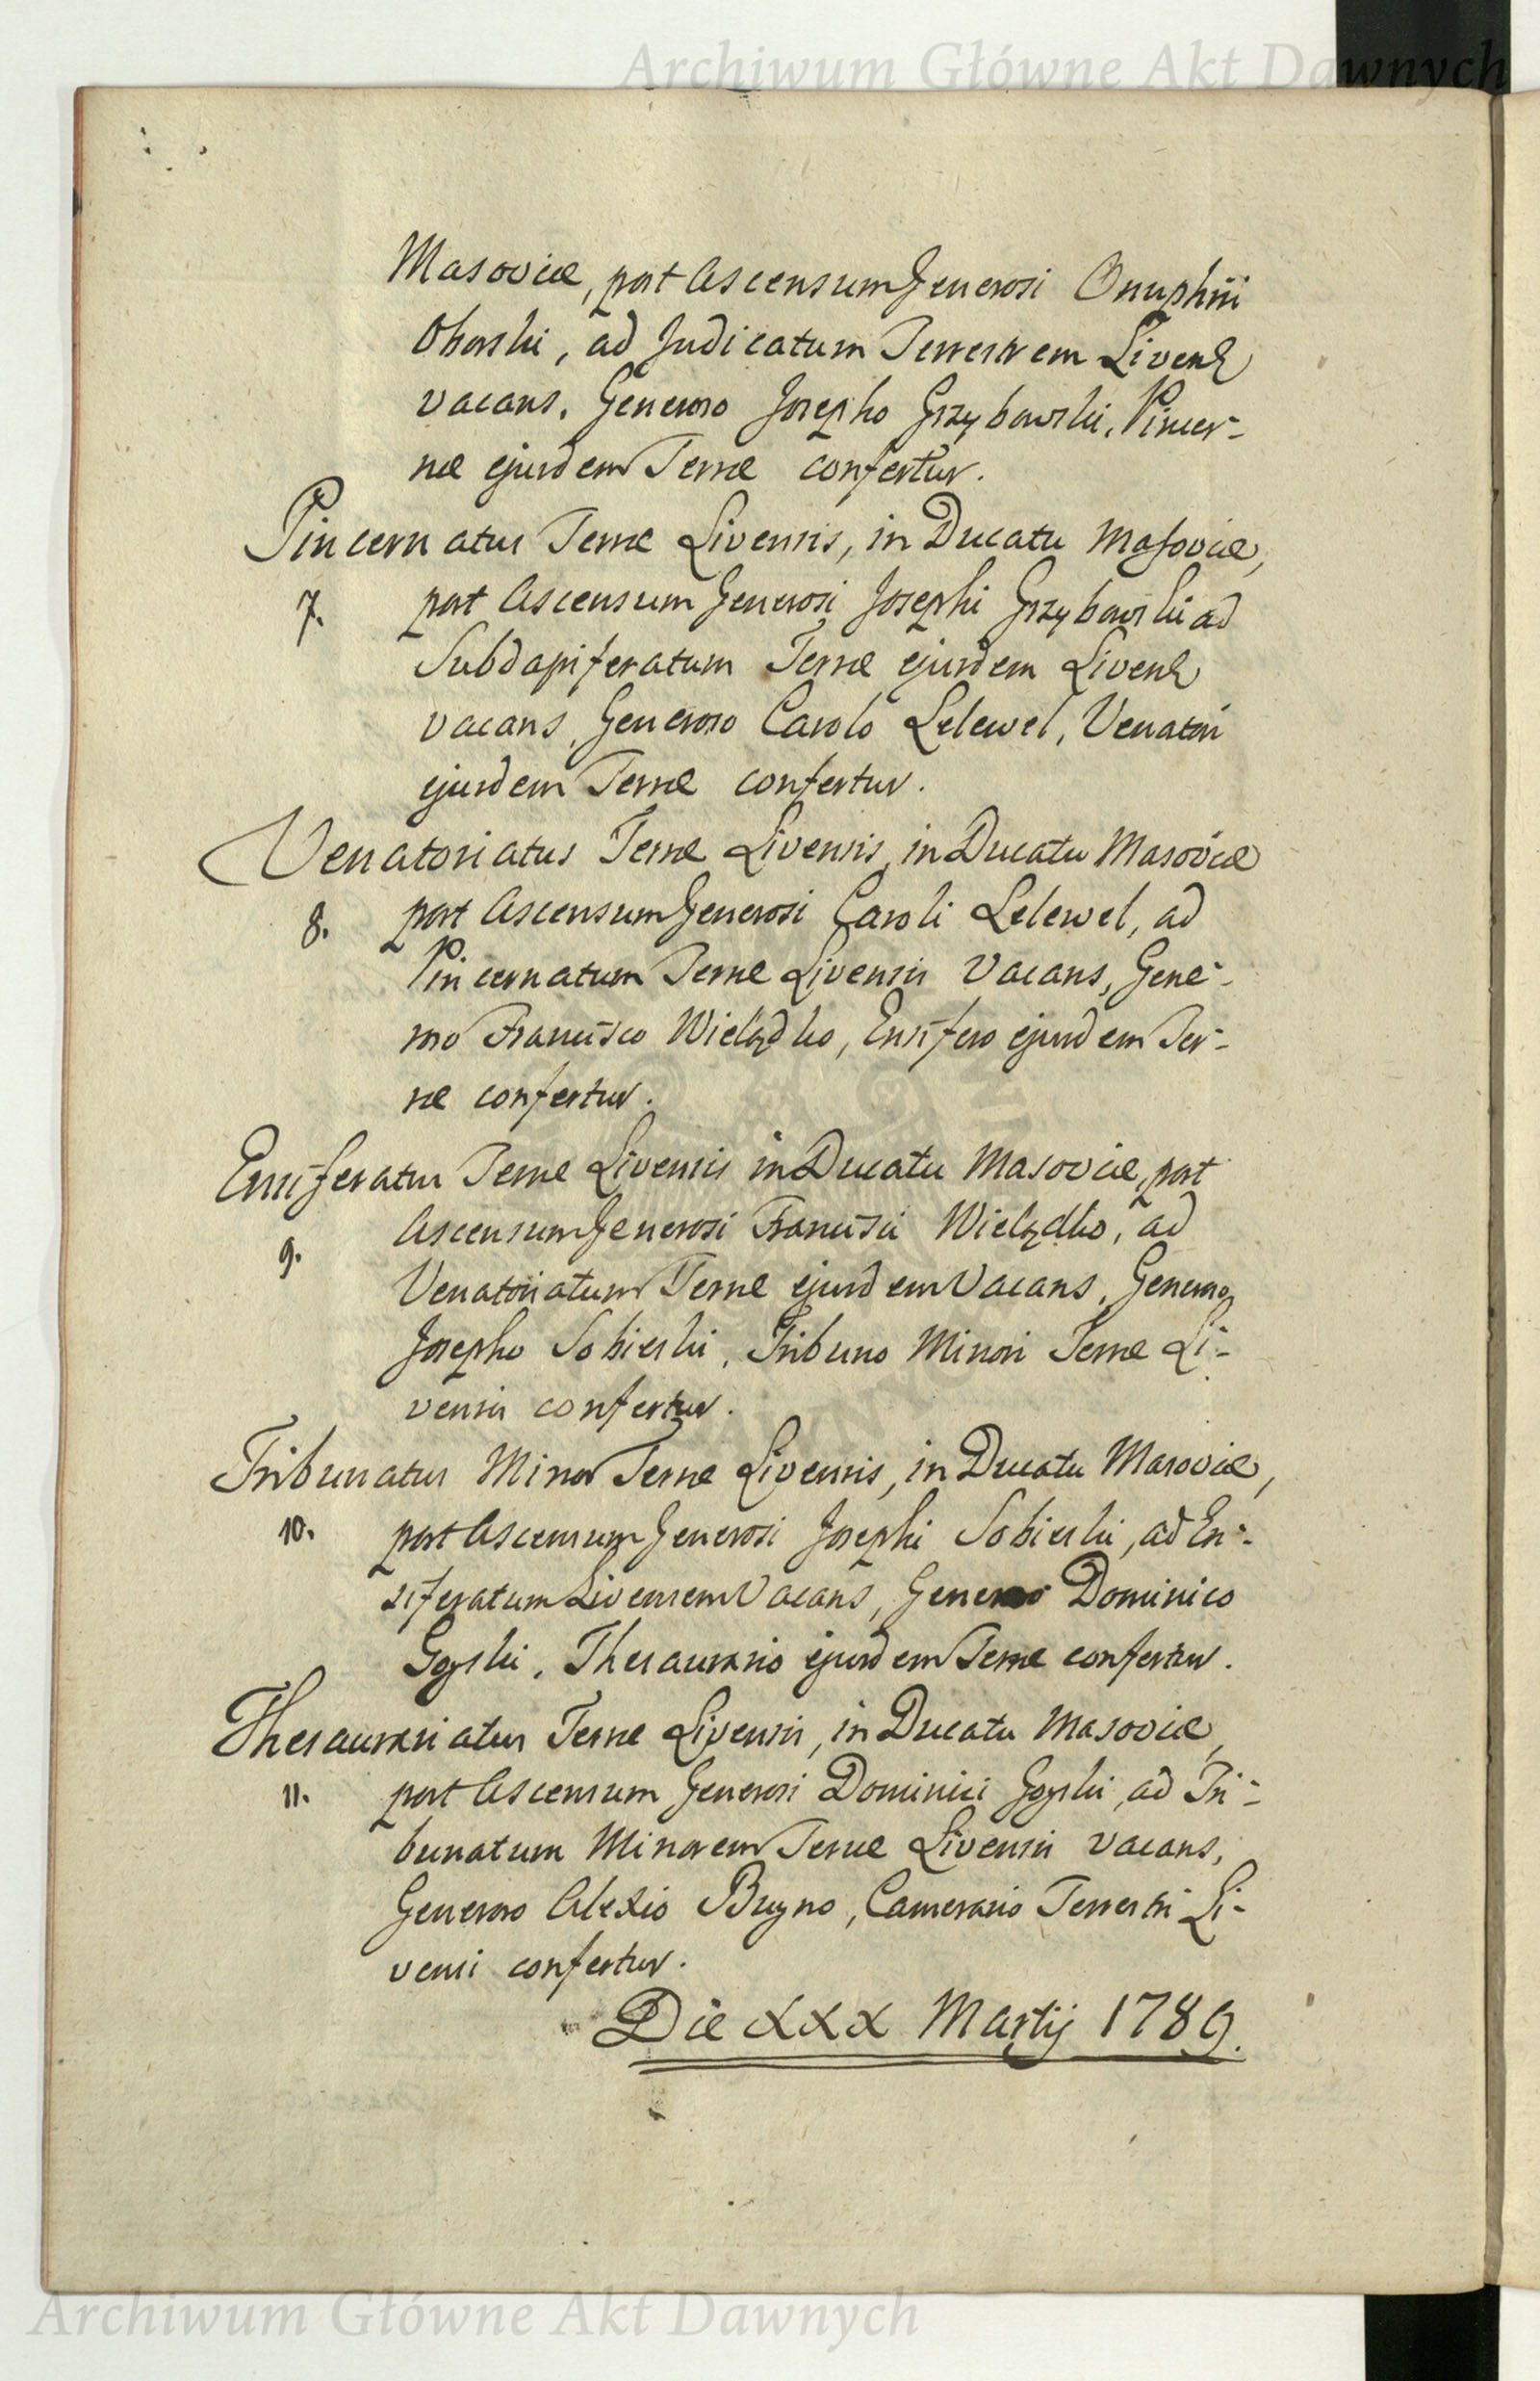 Archiwum Główne Akt Dawnych
Masoviæ, post Ascensum Generosi Onuphrii
Oborski, ad Judicatum Terrestrem Livens
vacans, Generoso Josepho Grzybowski, Pincer-
næ ejusdem Terræ confertur.
Pincernatus Terræ Livensis, in Ducatu Masoviæ,
7. post Ascensum Generosi Josephi Grzybowski ad
Subdapiferatum Terræ ejusdem Livens
vacans, Generoso Carolo Lelewel, Venatori
ejusdem Terræ confertur.
Venatoriatus Terræ Livensis, in Ducatu Masoviæ
8. post Ascensum Generosi Caroli Lelewel, ad
Pincernatum Terræ Livensis vacans, Gene-
roso Francisco Wielądko, Ensifero ejusdem Ter-
ræ confertur.
Ensiferatus Terræ Livensis in Ducatu Masoviæ, post
9. Ascensum Generosi Francisci Wielądko, ad
Venatoriatum Terræ ejusdem vacans, Generoso
Josepho Sobieski, Tribuno Minori Terræ Li-
vensis confertur.
Tribunatus Minor Terræ Livensis, in Ducatu Masoviæ,
10. post Ascensum Generosi Josephi Sobieski, ad En-
siferatum Livensem vacans, Generoso Dominico
Gozski, Thesaurario ejusdem Terræ confertur.
Thesaurariatus Terræ Livensis, in Ducatu Masoviæ,
11. post Ascensum Generosi Dominici Gozski, ad Tri-
bunatum Minorem Terræ Livensis vacans,
Generoso Alexio Buyno, Camerario Terrestri Li-
vensi confertur.
Die XXX Martij 1789.
Archiwum Główne Akt Dawnych